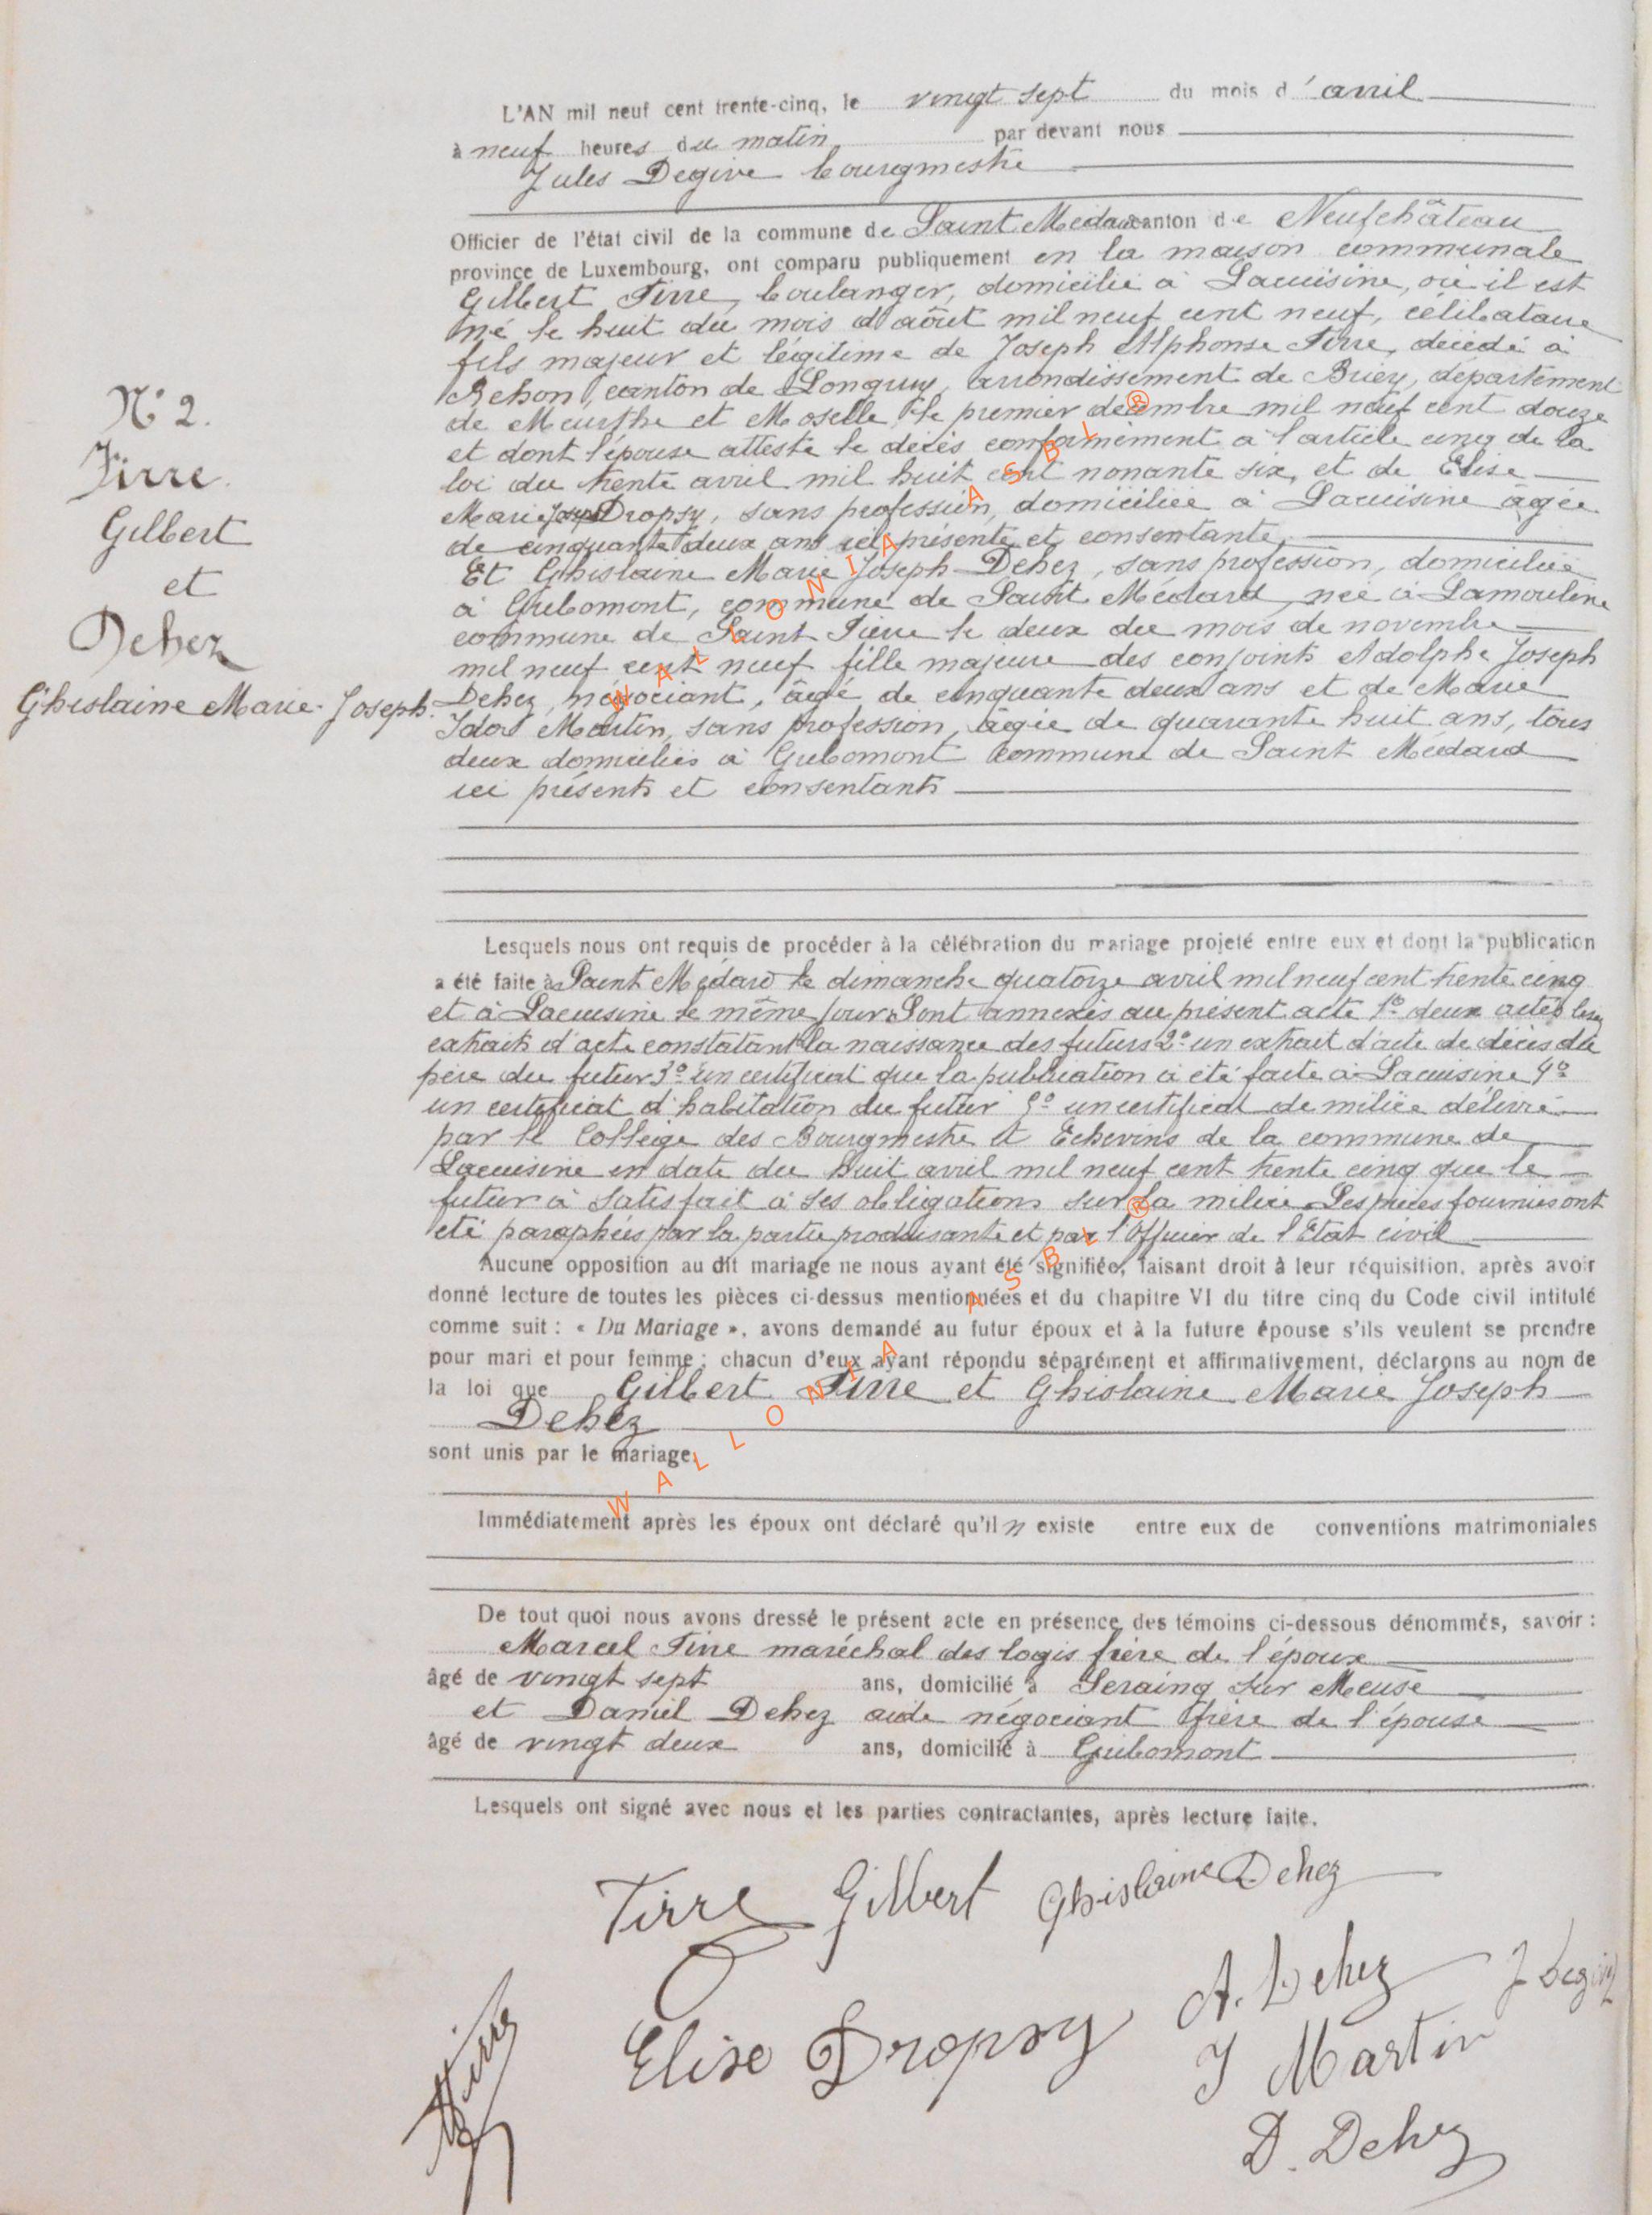 L'AN mil neuf cent trente-cinq, le vingt sept du mois d'avril
à neuf heures du matin par devant nous
Jules Degive bourgmestre
Officier de l'état civil de la commune de Saint Médard canton de Neufchâteau
province de Luxembourg, ont comparu publiquement en la maison communale
Gilbert Tirre, boulanger, domicilié à Lacuisine, où il est
né le huit du mois d'août mil neuf cent neuf, célibataire
fils majeur et légitime de Joseph Alphonse Tirre, décédé à
Rehon, canton de Longwy, arrondissement de Briey, département
de Meurthe et Moselle le premier décembre mil neuf cent douze
et dont l'épouse atteste le décès conformément à l'article cinq de la
loi du trente avril mil huit cent nonante six, et de Elise
Marie Dropsy, sans profession, domiciliée à Lacuisine âgée
de cinquante deux ans ici présente et consentante,
Et Ghislaine Marie Joseph Dehez, sans profession, domiciliée
à Gribomont, commune de Saint Médard, née à Lamouline
commune de Saint Pierre le deux du mois de novembre
mil neuf cent neuf fille majeure des conjoints Adolphe Joseph
Dehez, négociant, âgé de cinquante deux ans et de Marie
Ida Martin, sans profession, âgée de quarante huit ans, tous
deux domiciliés à Gribomont commune de Saint Médard
ici présents et consentants
N° 2.
Tirre.
Gilbert
et
Dehez
Ghislaine Marie-Joseph.
Lesquels nous ont requis de procéder à la célébration du mariage projeté entre eux et dont la publication
a été faite à Saint Médard le dimanche quatorze avril mil neuf cent trente cinq
et à Lacuisine le même jour. Sont annexés au présent acte 1° deux actes
extraits d'acte constatant la naissance des futurs 2° un extrait d'acte de décès du
père du futur 3° un certificat que la publication a été faite à Lacuisine 4°
un certificat d'habitation du futur 5° un certificat de milice délivré
par le Collège des Bourgmestre et Echevins de la commune de
Lacuisine en date du huit avril mil neuf cent trente cinq que le
futur à satisfait à ses obligations sur la milice. Les pièces fournies ont
été paraphées par la partie produisante et par l'Officier de l'Etat civil
Aucune opposition au dit mariage ne nous ayant été signifiée, faisant droit à leur réquisition, après avoir
donné lecture de toutes les pièces ci-dessus mentionnées et du chapitre VI du titre cinq du Code civil intitulé
comme suit : « Du Mariage », avons demandé au futur époux et à la future épouse s'ils veulent se prendre
pour mari et pour femme ; chacun d'eux ayant répondu séparément et affirmativement, déclarons au nom de
la loi que Gilbert Tirre et Ghislaine Marie Joseph
Dehez
sont unis par le mariage.
Immédiatement après les époux ont déclaré qu'il n existe entre eux de conventions matrimoniales
De tout quoi nous avons dressé le présent acte en présence des témoins ci-dessous dénommés, savoir :
Marcel Tirre maréchal des logis frère de l'époux
âgé de vingt sept ans, domicilié à Seraing sur Meuse
et Daniel Dehez aide négociant frère de l'épouse
âgé de vingt deux ans, domicilié à Gribomont
Lesquels ont signé avec nous et les parties contractantes, après lecture faite.
Tirre Gilbert Ghislaine Dehez
A. Dehez J Degive
Elise Dropsy
I Martin
D. Dehez
WALLONIA ASBL ®
WALLONIA ASBL ®